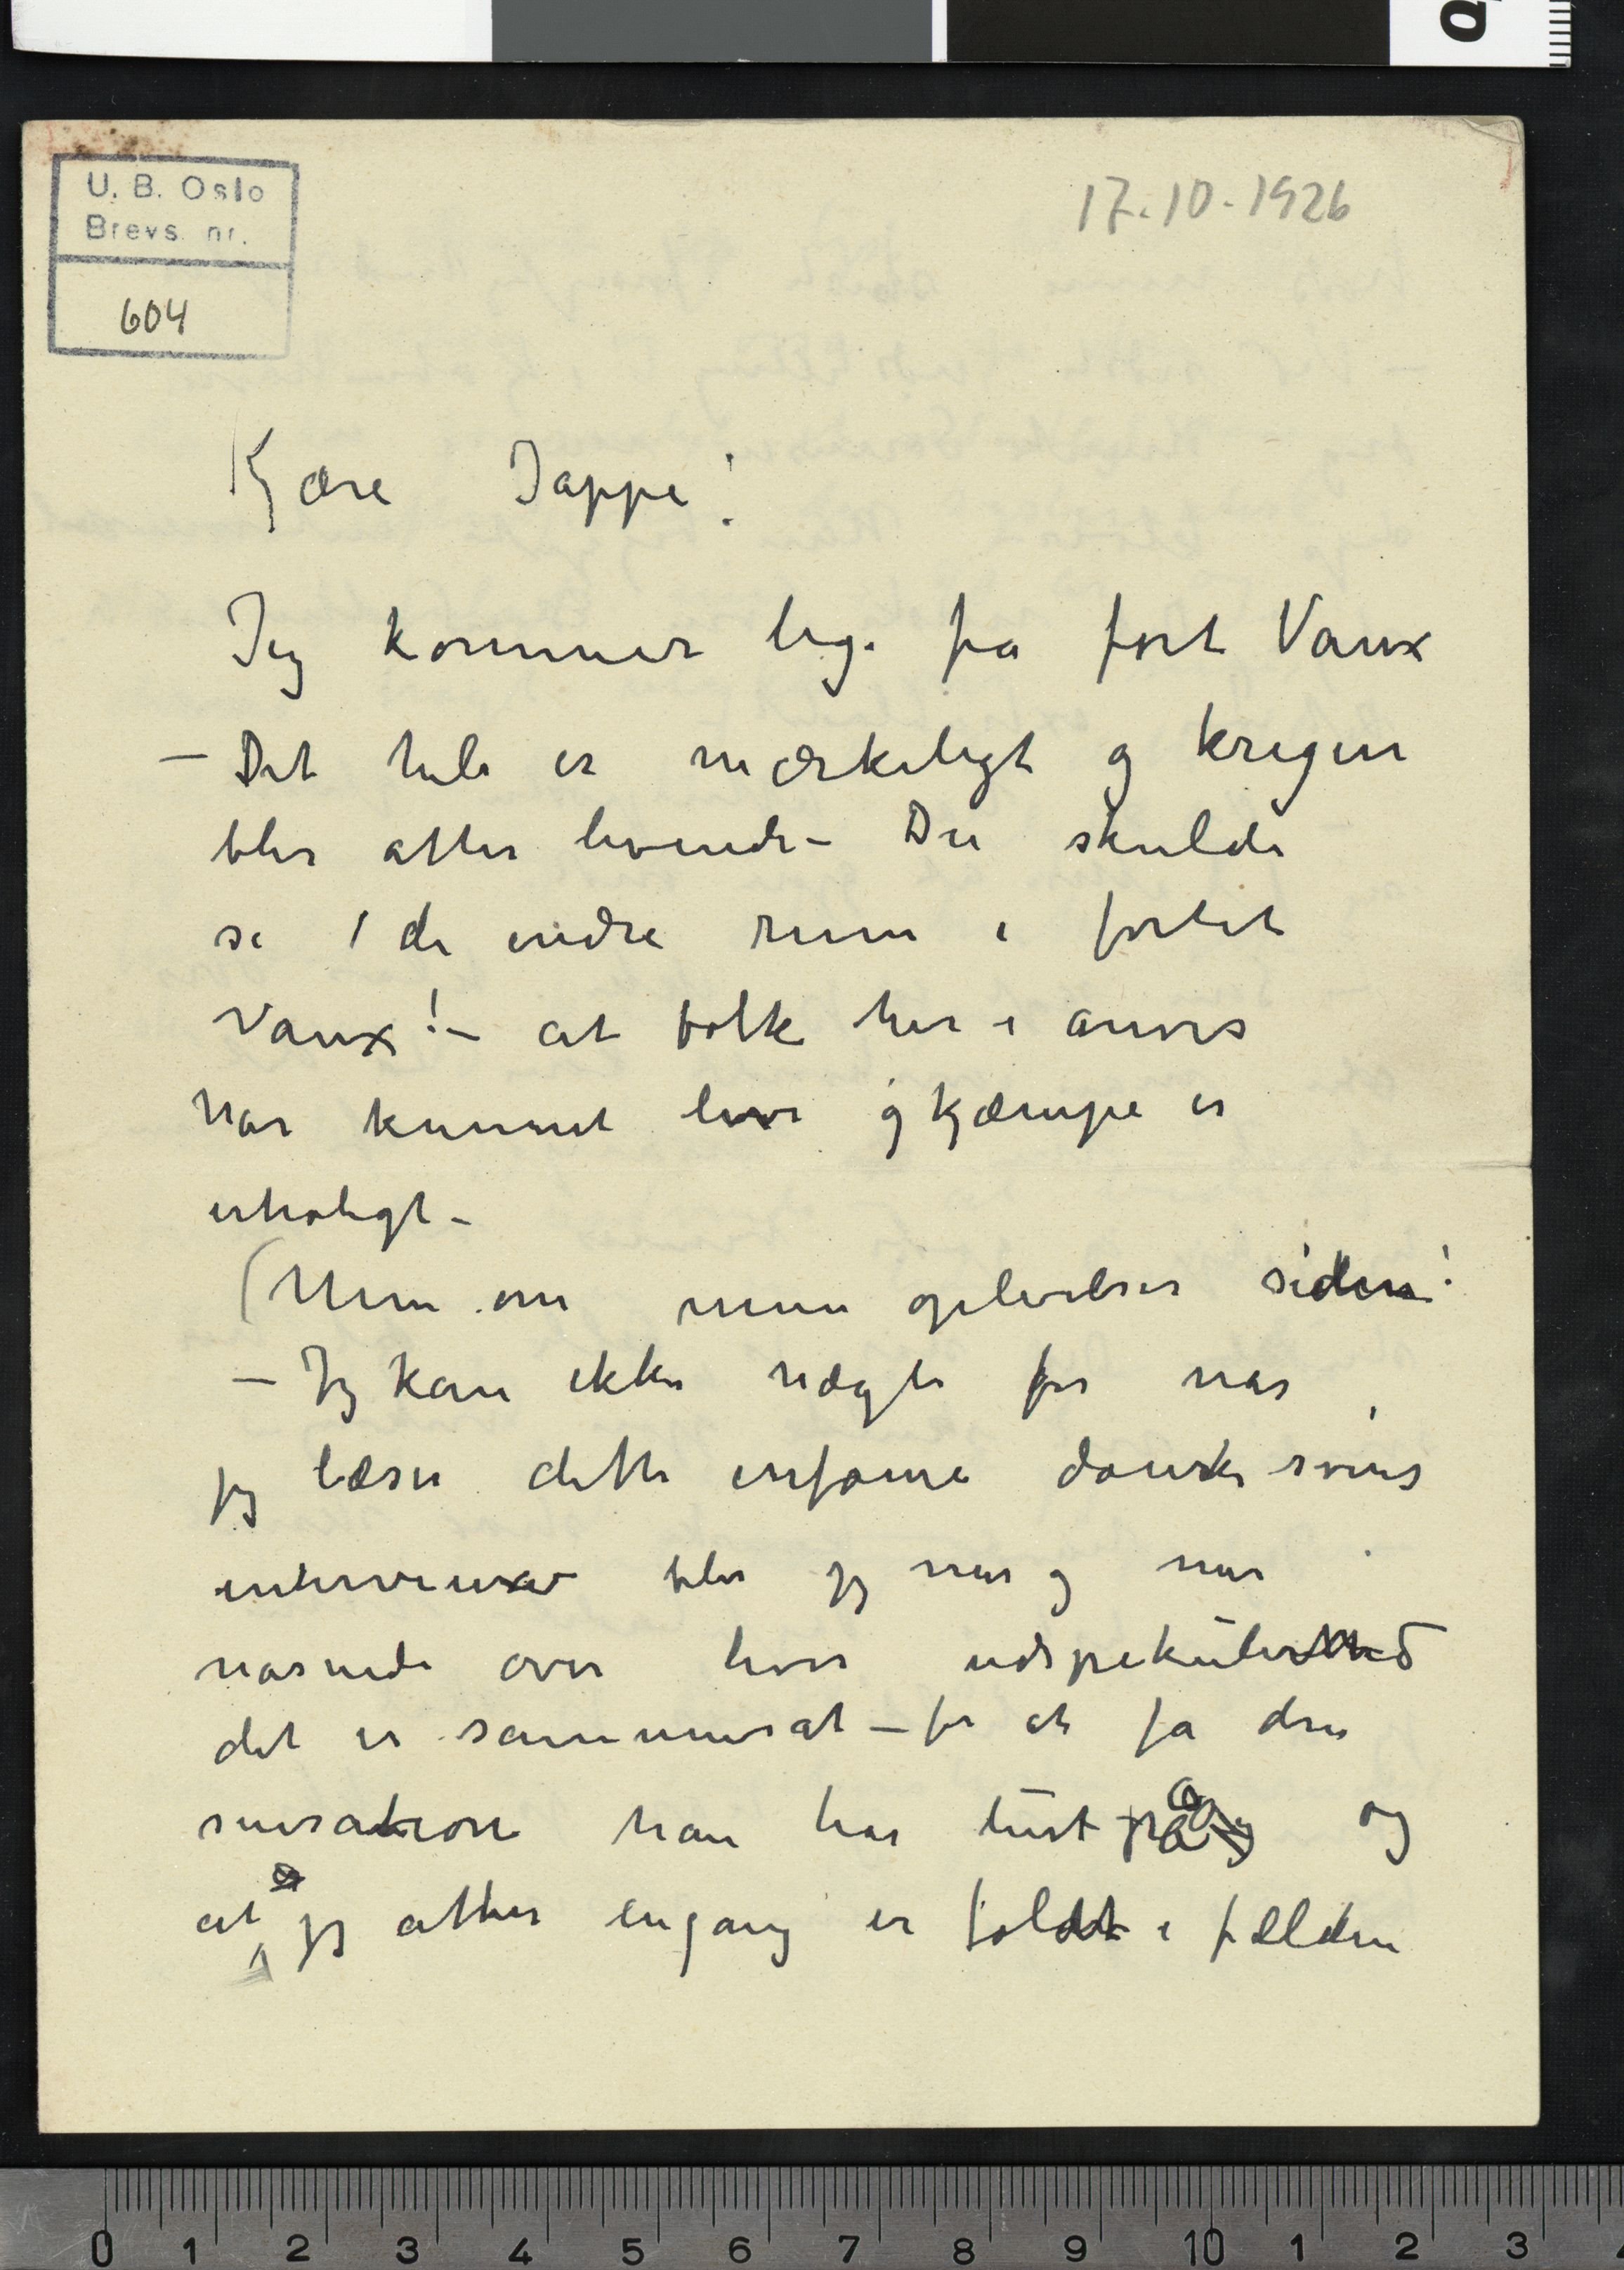 U. B. Oslo
Brevs. nr.
604
17.10.1926
Kjære Jappe!
Jeg kommer lige fra fort Vaux
– Det hele er mærkeligt og krigen
blir atter levende – Du skulde
se de indre rum i fortet
Vaux! – at folk her i
har kunnet leve og kjæmpe er
utroligt –
(Mere om mine oplevelser siden!
– Jeg kan ikke nægte for når
jeg læser dette infame danske svins
interviewer blir jeg mer og mer
rasende over hvor udspekulert
det er sammensat – for at få den
sensation han har lyst på og
at jeg atter engang er faldt i fælden
0 1 2 3 4 5 6 7 8 9 10 1 2 3